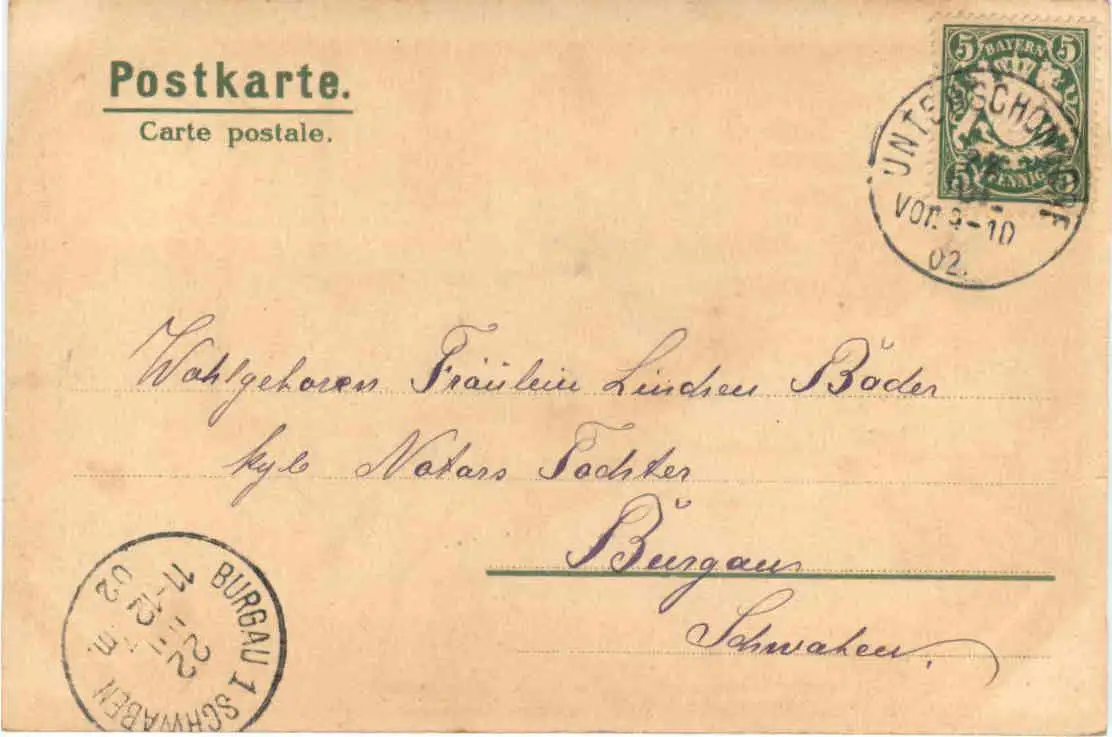 Postkarte.
Carte postale.
5 BAYERN 5
5 PFENNIG 5
UNTERSCHONDORF
VOR. 9-10
02.
Wohlgeboren Fräulein Bader
kgl Notars Tochter
Burgau
Schwaben.
BURGAU 1 SCHWABEN
22
11-12
02